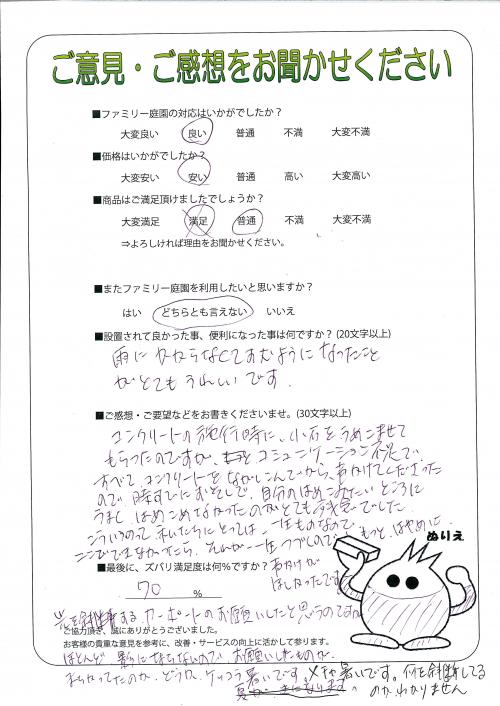 ご意見・ご感想をお聞かせください
■ファミリー庭園の対応はいかがでしたか?
大変良い 良い 普通 不満 大変不満
■価格はいかがでしたか?
大変安い 安い 普通 高い 大変高い
■商品はご満足頂けましたでしょうか?
大変満足 満足 普通 不満 大変不満
⇒よろしければ理由をお聞かせください。
■またファミリー庭園を利用したいと思いますか?
はい どちらとも言えない いいえ
■設置されて良かった事、便利になった事は何ですか? (20文字以上)
雨にかからなくてすむようになったこと
がとてもうれしいです.
■ご感想・ご要望などをお書きくださいませ。(30文字以上)
コンクリートの施行時に、小石をうめこませて
もらったのですが、コミュニケーション不足で、
すべて、コンクリートをながしこんでから、声かけてくださった
ので 時すでにおそしで、自分のはめこみたいところに
うまく はめこめなかったのがとても残念でした.
こういうのって、私たちにとっては、一生ものなので
ここでできなかったら、 一生 ので もっと、はやめに
声かけが
ほしかったです
■最後に、ズバリ満足度は何%ですか?
70 %
ぬりえ
光を斜断する カーポートのお願いしたと思うのですが
ご協力頂き、誠にありがとうございました。
お客様の貴重な意見を参考に、改善・サービスの向上に活かして参ります。
ほとんど 影にならないので お願いしたものか
まちがってたのか、どうか、ケッコウ暑いです。メチャ暑いです。何を斜断してる
のか、わかりません